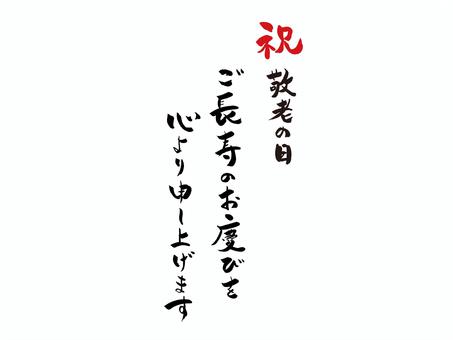 祝
敬老の日
ご長寿のお慶びを
心より申し上げます